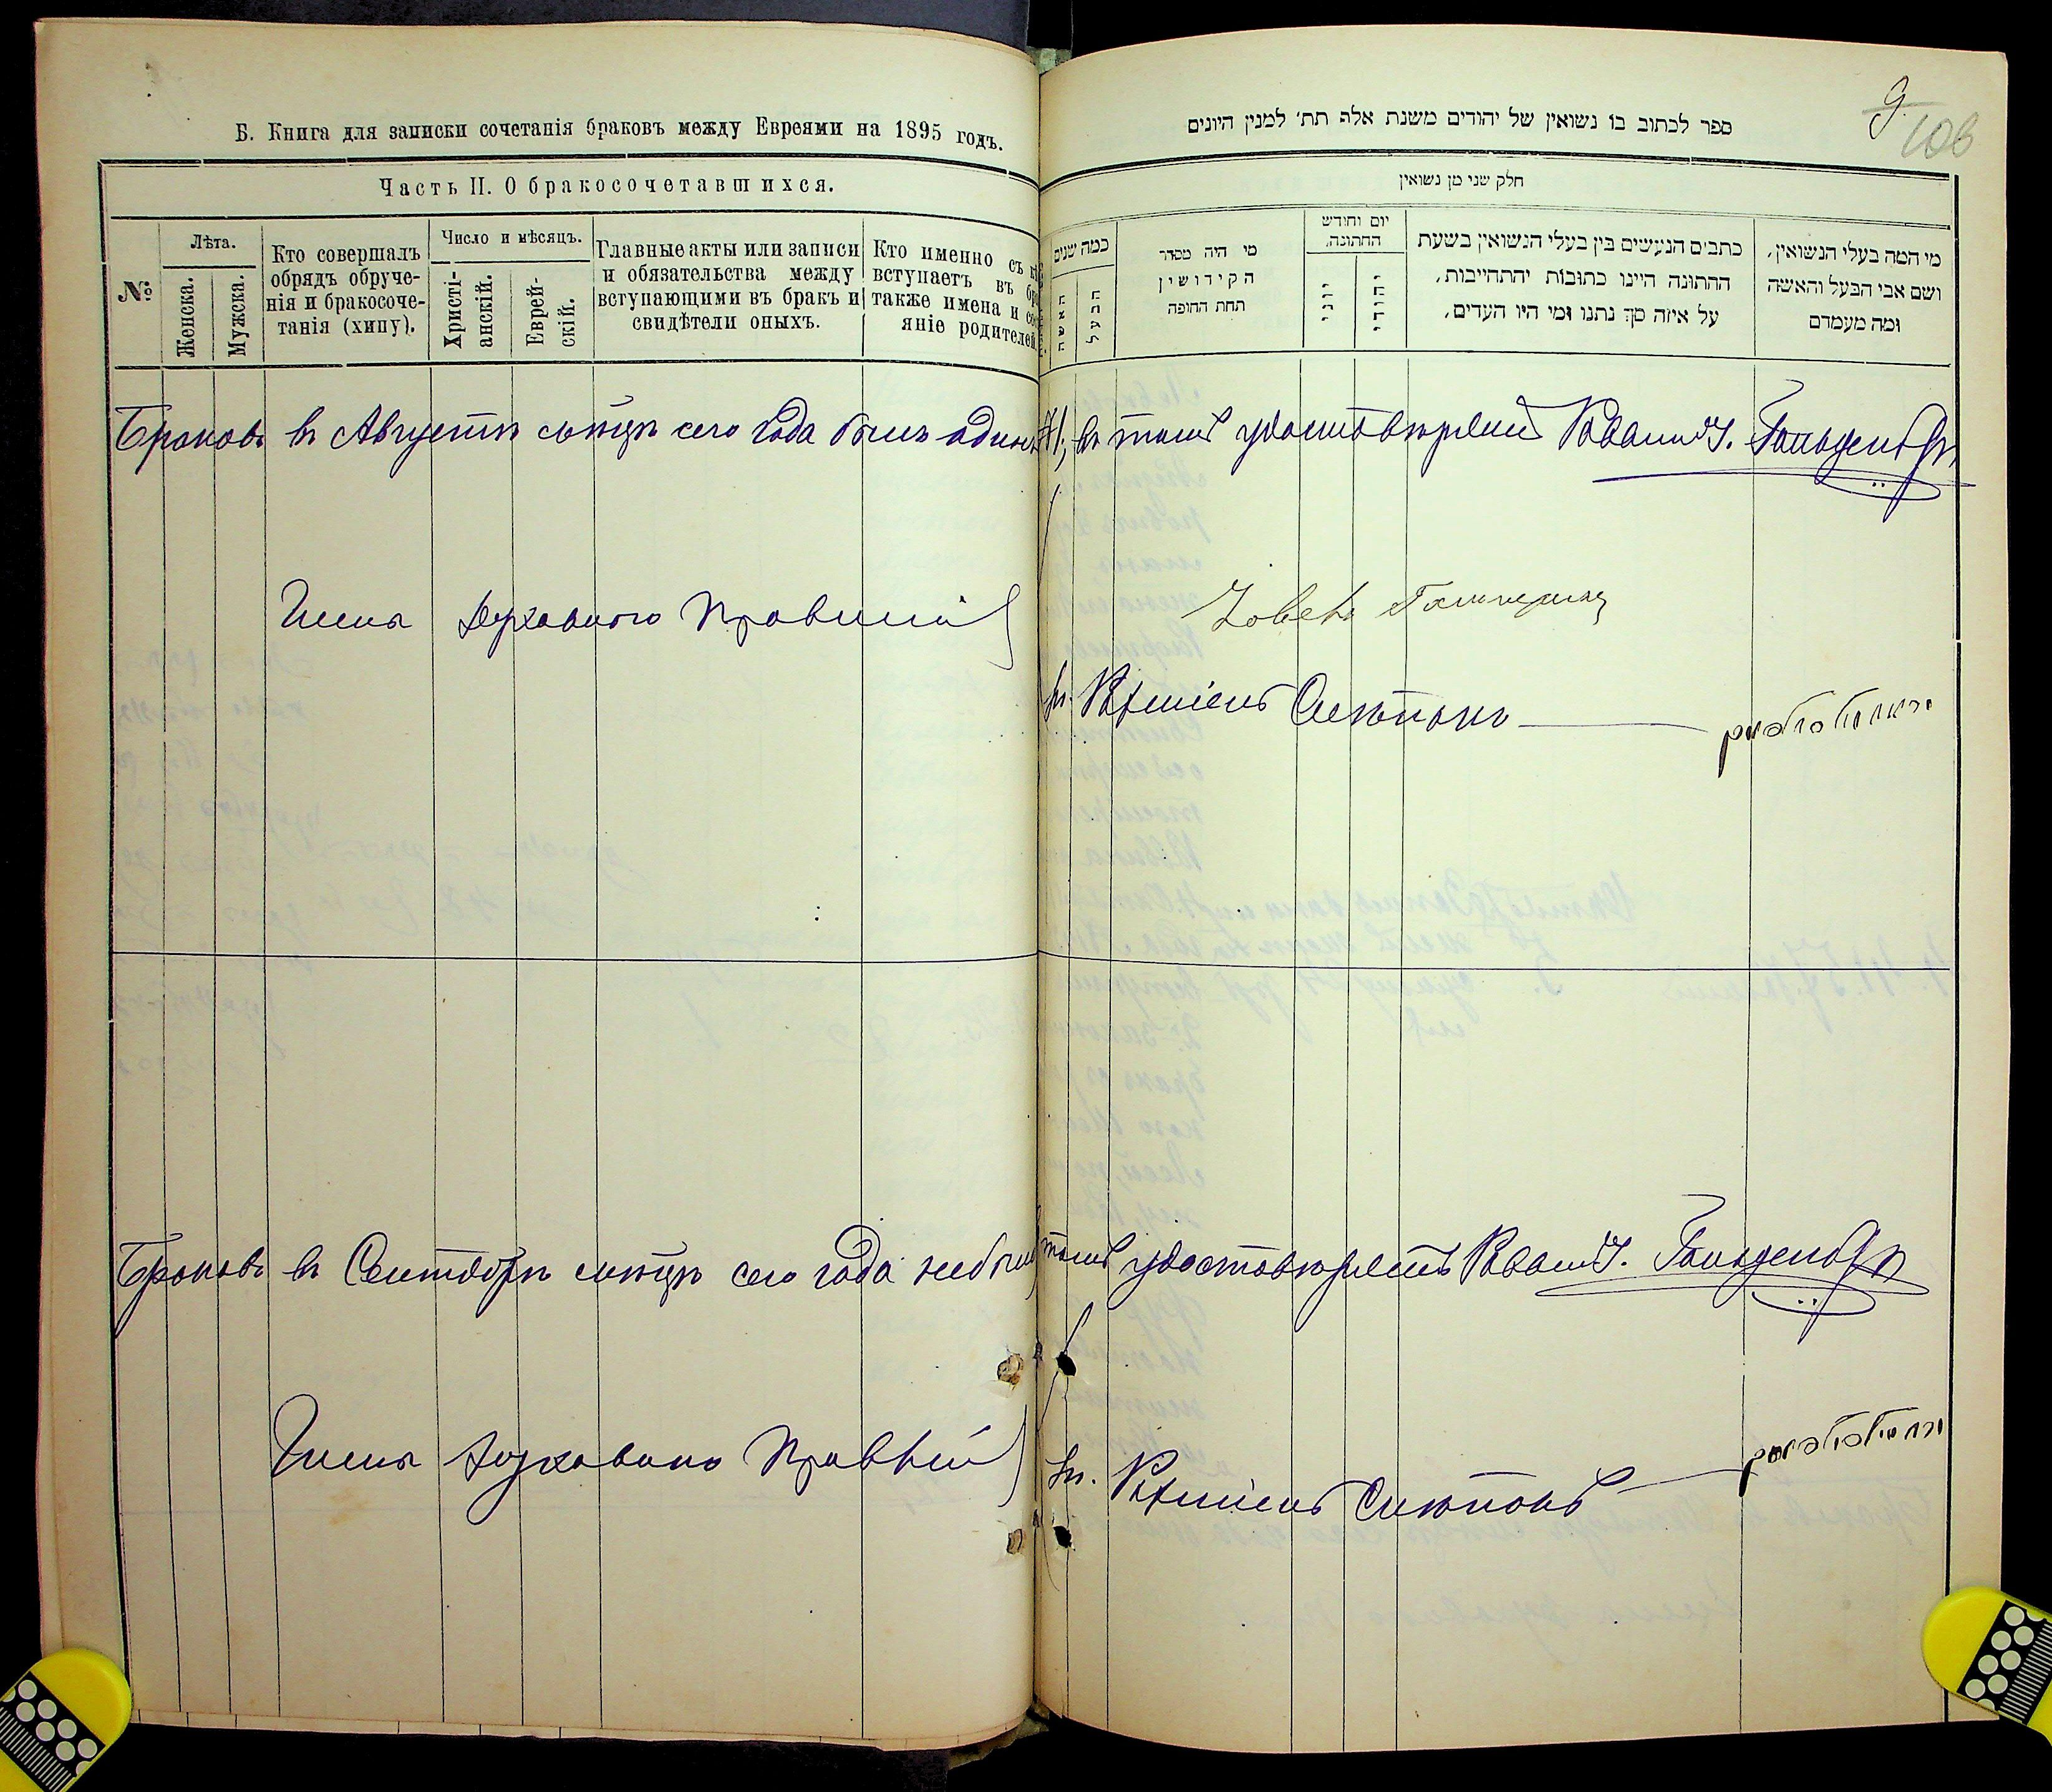 Б. Книга для записки сочетанія браковъ между Евреями на 1895 годъ.
Часть II. О бракосочетавшихся.
№
Лѣта.
Женска.
Мужска.
Кто совершалъ
обрядъ обруче-
нія и бракосоче-
танія (хипу).
Число и мѣсяцъ.
Христі-
анскій.
Еврей-
скій.
Главные акты или записи
и обязательства между
вступающими въ бракъ и
свидѣтели оныхъ.
Кто именно съ
вступаетъ въ
также имена и
яніе родителей.
Браковъ въ Августѣ мѣсяцѣ сего года былъ одинъ
Члены Духовного Правленія
Браковъ въ Сентябрѣ мѣсяцѣ сего года небыло
Члены Духовного Правленія
9
106
ספר לכתוב בו נשואין של יהודים משנת אלף תת׳ למנין היונים
חלק שני מן נשואין
כמה שנים
האשה
הבעל
מי היה מסדר
הקידושין
תחת החופה
יום וחודש
החתונה,
יוני
יהודי
כתבים הנעשים בין בעלי הנשואין בשעת
החתונה היינו כתובות והתחייבות,
על איזה סך נתנו ומי היו העדים,
מי המה בעלי הנשואין,
ושם אבי הבעל והאשה
ומה מעמדם
/1/, въ томъ удостовѣряетъ Раввинъ
томъ удостовѣряетъ Раввинъ